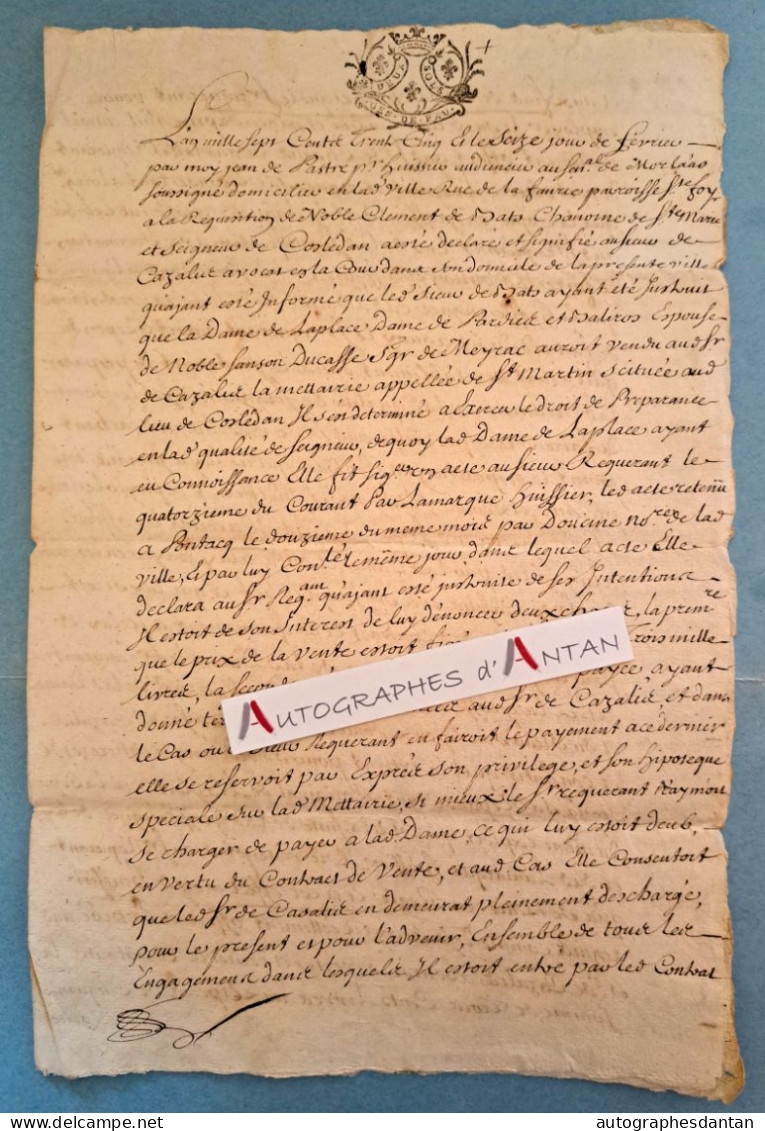 DEUX SOLS
GEN · DE · PAU
L'an mille sept Cents Trente Cinq Et le Seize jour de fevrier
par moy jean de Pastre pr huissier audiencier au Senal de Morlaas
soussigné domicilié en lade ville Rue de la faurie paroisse Ste foy
a la Requisition de Noble Clement de Bats Chanoine de Ste Marie
et Seigneur de Coslédan a esté declaré et signifié au sieur de
Cazalis avocat en la Cour dans son domicile de la presente ville
qu'ajant esté Informé que led Sieur de Bats ayant été Instruit
que la Dame de Laplace Dame de Pardies et Baliros Espouse
de Noble Sanson Ducasse Sgr de Meyrac auroit vendu aud Sr
de Cazalis la mettairie appellée de St Martin scituée aud
lieu de Coslédan Il s'est determiné a Exercer le droit de Preparance
en lade qualité de Seigneur, de quoy lade Dame de Laplace ayant
eu Connoissance Elle fit un acte au sieur Requerant le
quatorzieme du Courant Par Lamarque Huissier, led acte retenu
a Pontacq le douzieme du meme mois par nore de lad
ville, Et par luy le même jour, dans lequel acte Elle
declara au Sr Reqant qu'ajant esté instruite de ses Intentions
Il estoit de son Interest de luy dénoncer deux choses, la premre
que le prix de la vente estoit Trois mille
livres, la seconde payée ayant
donné aud Sr de Cazalis, et dans
le Cas ou le Sieur Requerant en fairoit le payement a ce dernier
elle se reservoit par Exprés son privilege, et son hipoteque
speciale sur lade Mettairie, si mieux le Sr requerant N'aymoit
se charger de payer a lade Dame, ce qui luy estoit deub,
en vertu du Contract de Vente, et aud Cas Elle Consentoit
que led Sr de Casalis en demeurat pleinement deschargé,
pour le present et pour l'advenir, Ensemble de tous les
Engagemens dans lesquels Il estoit entré par led Contrat
AUTOGRAPHES d'ANTAN
autographesdantan